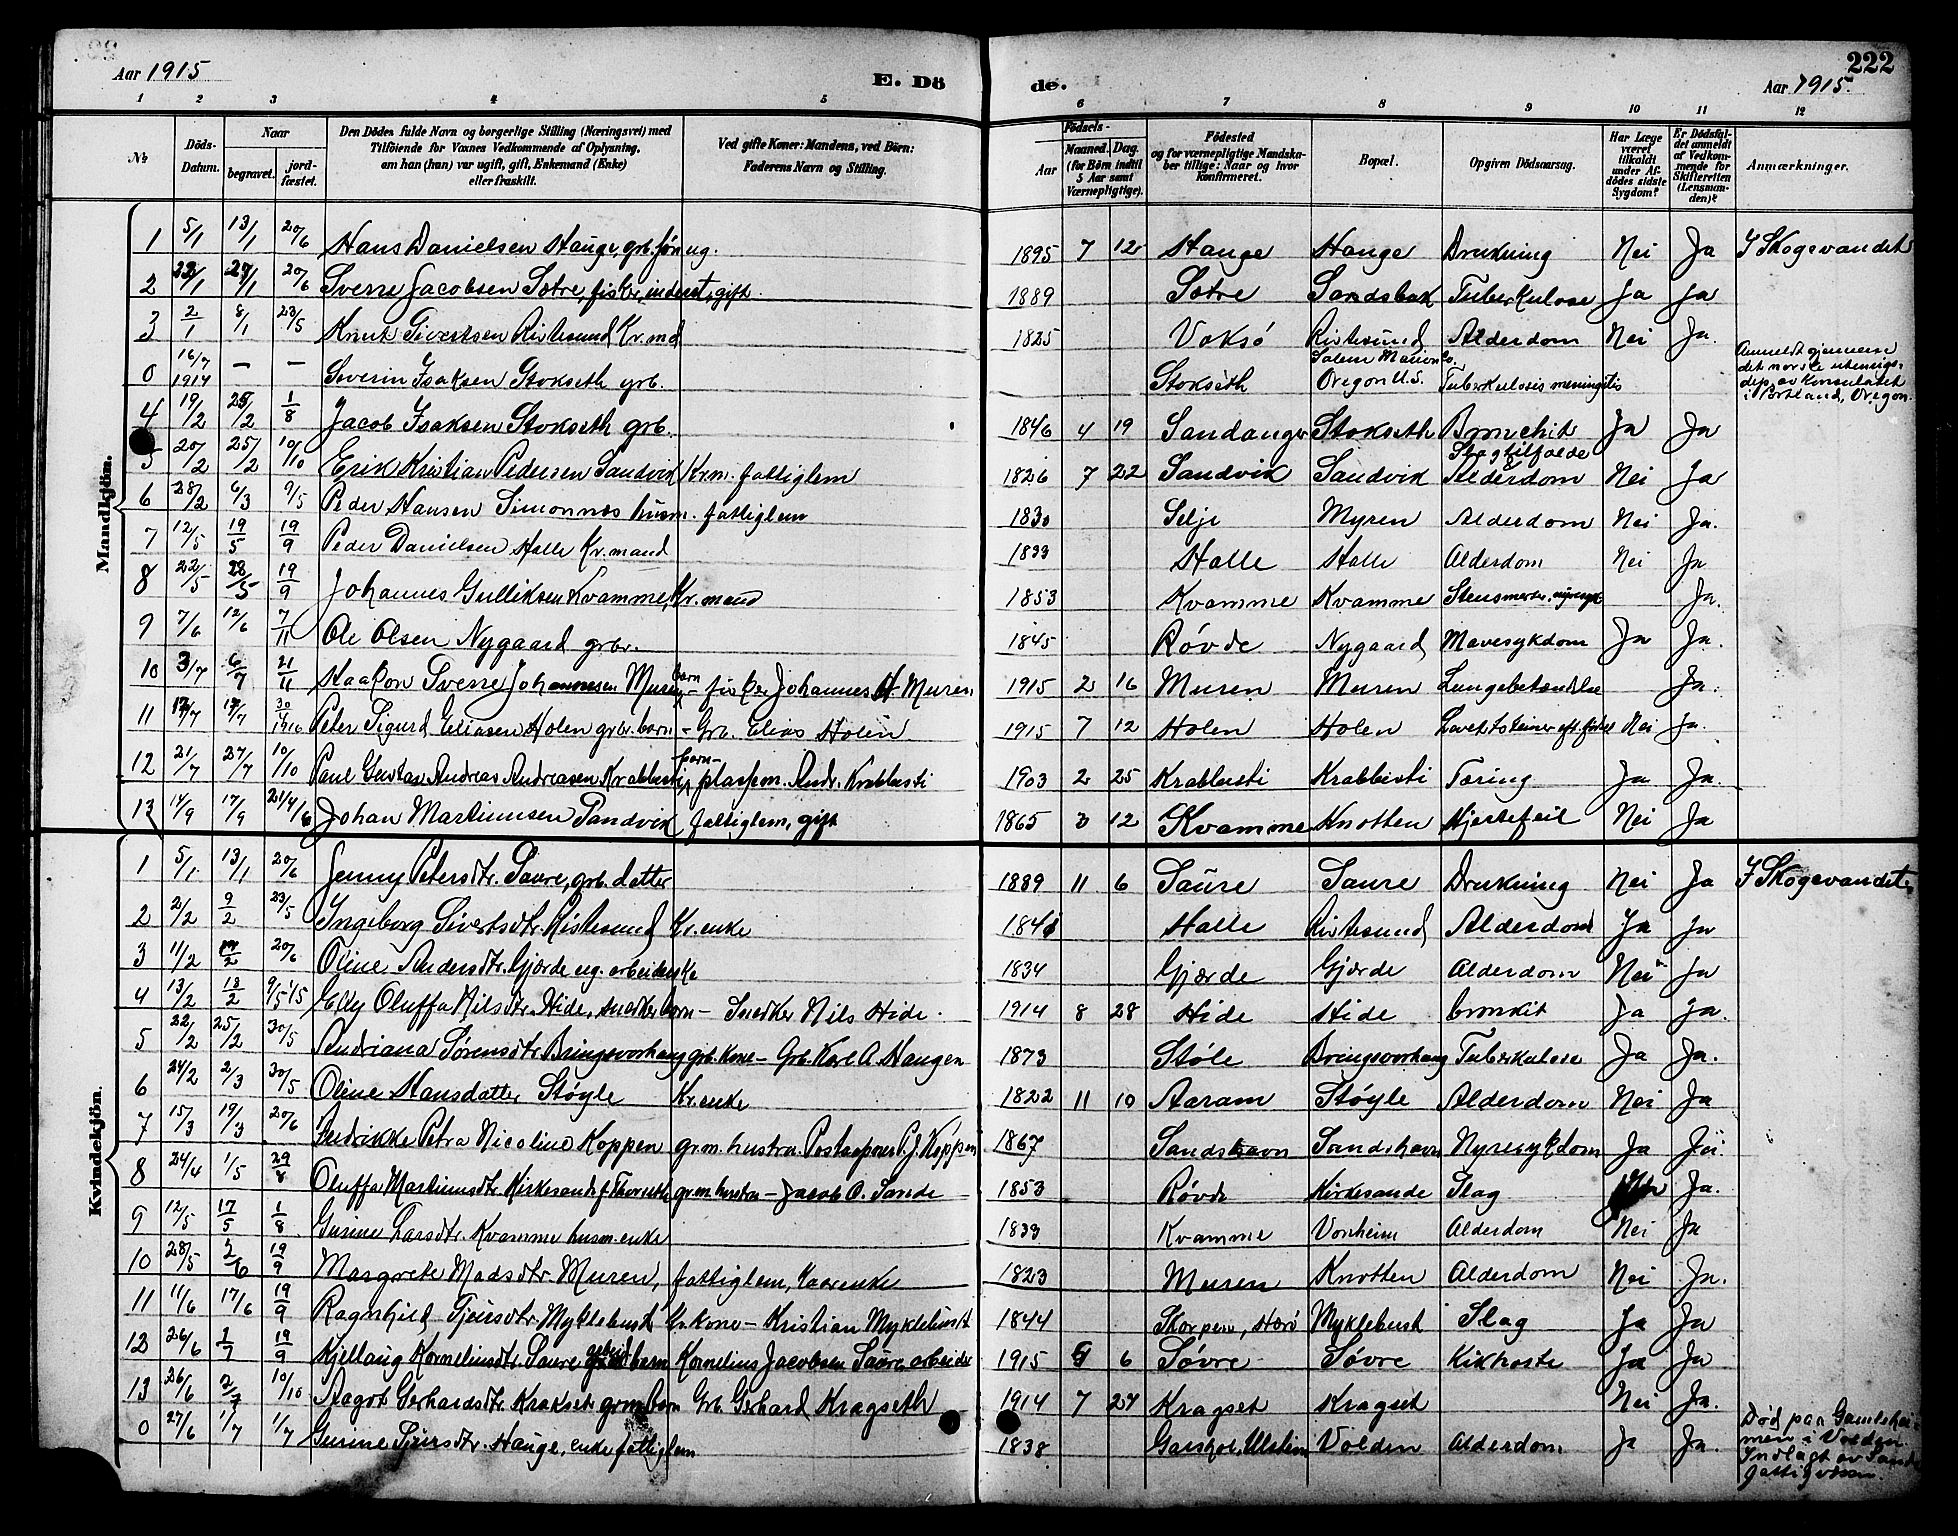 222
Aar 1915
E. Dö
de.
Aar 1915.
1 2 3 4 5 6 7 8 9 10 11 12
No.
Döds-
Datum.
Naar
begravet.
jord-
fæstet.
Den Dödes fulde Navn og borgerlige Stilling (Næringsvei) med
Tilföiende for Voxnes Vedkommende af Oplysning,
om han (hun) var ugift, gift, Enkemand (Enke)
eller fraskilt.
Ved gifte Koner: Mandens, ved Börn:
Faderens Navn og Stilling.
Födsels-
Aar
Maaned. Dag.
(for Börn indtil
5 Aar samt
Værnepligtige).
Födested
og for værnepligtige Mandska-
ber tillige: Naar og hvor
konfirmeret.
Bopæl.
Opgiven Dödsaarsag.
Har Læge
været
tilkaldt
under Af-
dödes sidste
Sygdom?
Er Dödsfal-
det anmeldt
af Vedkom-
mende for
Skifteretten
(Lensman-
den)?
Anmærkninger.
Mandkjön.
1 5/1 13/1 20/6 Hans Danielsen Hauge, grb. søn ug. 1895 7 12 Hauge Hauge Drukning Nei Ja I Skogevandet
2 22/1 27/1 20/6 Sverre Jacobsen Sætre, fisker, inderst, gift. 1889 Sætre Sandsbak Tuberkulose Ja Ja
3 2/1 8/1 23/5 Knut Sivertsen Ristesund Kr.md 1825 Voksø Ristesund Alderdom Nei Ja.
0 16/7 1914 – – Severin Isaksen Stokseth grb. Stokseth Salem Marion Co. Oregon U.S. Tuberkulosis meningitis Anmeldt gjennem det norske utenrigs- dep. av Konsulatet i Portland, Oregon.
4 19/2 25/2 1/8 Jacob Isaksen Stokseth grb. 1846 4 19 Sandanger Stokseth Bronchit Ja Ja
5 20/2 25/2 10/10 Erik Kristian Pedersen Sandvik Kr.m. fattiglem 1826 7 22 Sandvik Sandvik Slagtilfælde Alderdom Nei Ja
6 28/2 6/3 9/5 Peder Hansen Simonnes husm. fattiglem 1830 Selje Myren Alderdom Nei Ja.
7 12/5 19/5 19/9 Peder Danielsen Halle Kr.mand 1833 Halle Halle Alderdom Nei Ja
8 22/5 28/5 19/9 Johannes Gulliksen Kvamme, Kr.mand 1853 Kvamme Kvamme Ja.
9 7/6 12/6 7/11 Ole Olsen Nygaard grbr. 1845 Røvde Nygaard Mavesykdom Ja Ja.
10 3/7 6/7 21/11 Haakon Sverre Johannesen Muren barn – fisker Johannes H. Muren 1915 2 16 Muren Muren Lungebetændelse Ja.
11 17/7 30/4 1916 Peter Sigurd Eliasen Holen grbr. barn – Grb. Elias Holen 1915 7 12 Holen Holen Nei Ja.
12 21/7 27/7 10/10 Paul Gustav Andreas Andreasen Krabbesti barn – plassm. Andr. Krabbesti 1903 2 25 Krabbesti Krabbesti Tæring Ja Ja.
13 14/9 17/9 24/4/6 Johan Martinussen Sandvik fattiglem, gift 1865 3 12 Kvamme Knotten Hjertefeil Nei Ja
Kvindekjön.
1 5/1 13/1 20/6 Jenny Petersdtr. Saure, grb. datter 1889 11 6 Saure Saure Drukning Nei Ja I Skogevandet.
2 2/2 9/2 23/5 Ingeborg Sivertsdtr. Ristesund Kr.enke Halle Ristesund Alderdom Ja Ja
3 11/2 20/6 Oline Andersdtr. Gjærde ug. arbeiderske 1834 Gjærde Gjærde Alderdom Nei Ja
4 13/2 18/2 9/5 15 Elly Oluffa Nilsdtr. Hide, snedker barn – Snedker Nils Hide. 1914 8 28 Hide Hide bronkit Ja Ja.
5 22/2 25/2 30/5 Andriana Sørensdtr. Bringsvorhaug grb. kone – Grb. Karl A. Haugen 1873 Støle Bringsvorhaug Tuberkulose Ja Ja.
6 24/2 2/3 30/5 Oline Hansdatter Støyle Kr.enke 1822 11 10 Aaram Støyle Alderdom Nei Ja
7 15/3 19/3 20/6 Fredrikke Petra Nicoline Koppen grm. hustru. Postaapner P.J. Koppen 1867 Sandshavn Sandshavn Nyresykdom Ja Ja.
8 24/4 1/5 29/8 Oluffa Martinusdtr. Kirkesande f. Thorseth grm. hustru – Jacob O. Sande 1853 Røvde Kirkesande Slag Ja.
9 12/5 17/5 1/8 Gurine Larsdtr. Kvamme husm. enke 1833 Kvamme Vonheim Alderdom Nei Ja
10 28/5 2/6 19/9 Margrete Madsdtr. Muren, fattiglem, Kaarenke 1823 Muren Knotten Alderdom Nei Ja.
11 11/6 17/6 19/9 Ragnhild Tjersdtr. Myklebust Kr.kone – Kristian Myklebust 1844 Skorpen, Herø Myklebust Slag Ja Ja
12 26/6 1/7 19/9 Kjellaug Korneliusdtr. Saure arbeid barn Kornelius Jacobsen Saure arbeider 1915 6 Søvre Søvre Kikhoste Ja Ja
13 26/6 2/7 10/10 Aagot Gerhardsdtr. Krakset grm. barn Grb. Gerhard Kragseth 1914 7 27 Kragset Kragset Nei Ja.
0 27/6 1/7 1/7 Gurine Tjersdtr. Hauge, enke fattiglem 1838 Ulstein Volden Alderdom Ja Ja. Død paa Gamlehei- men i Volden Indlagt av Sande fattigvæsen.